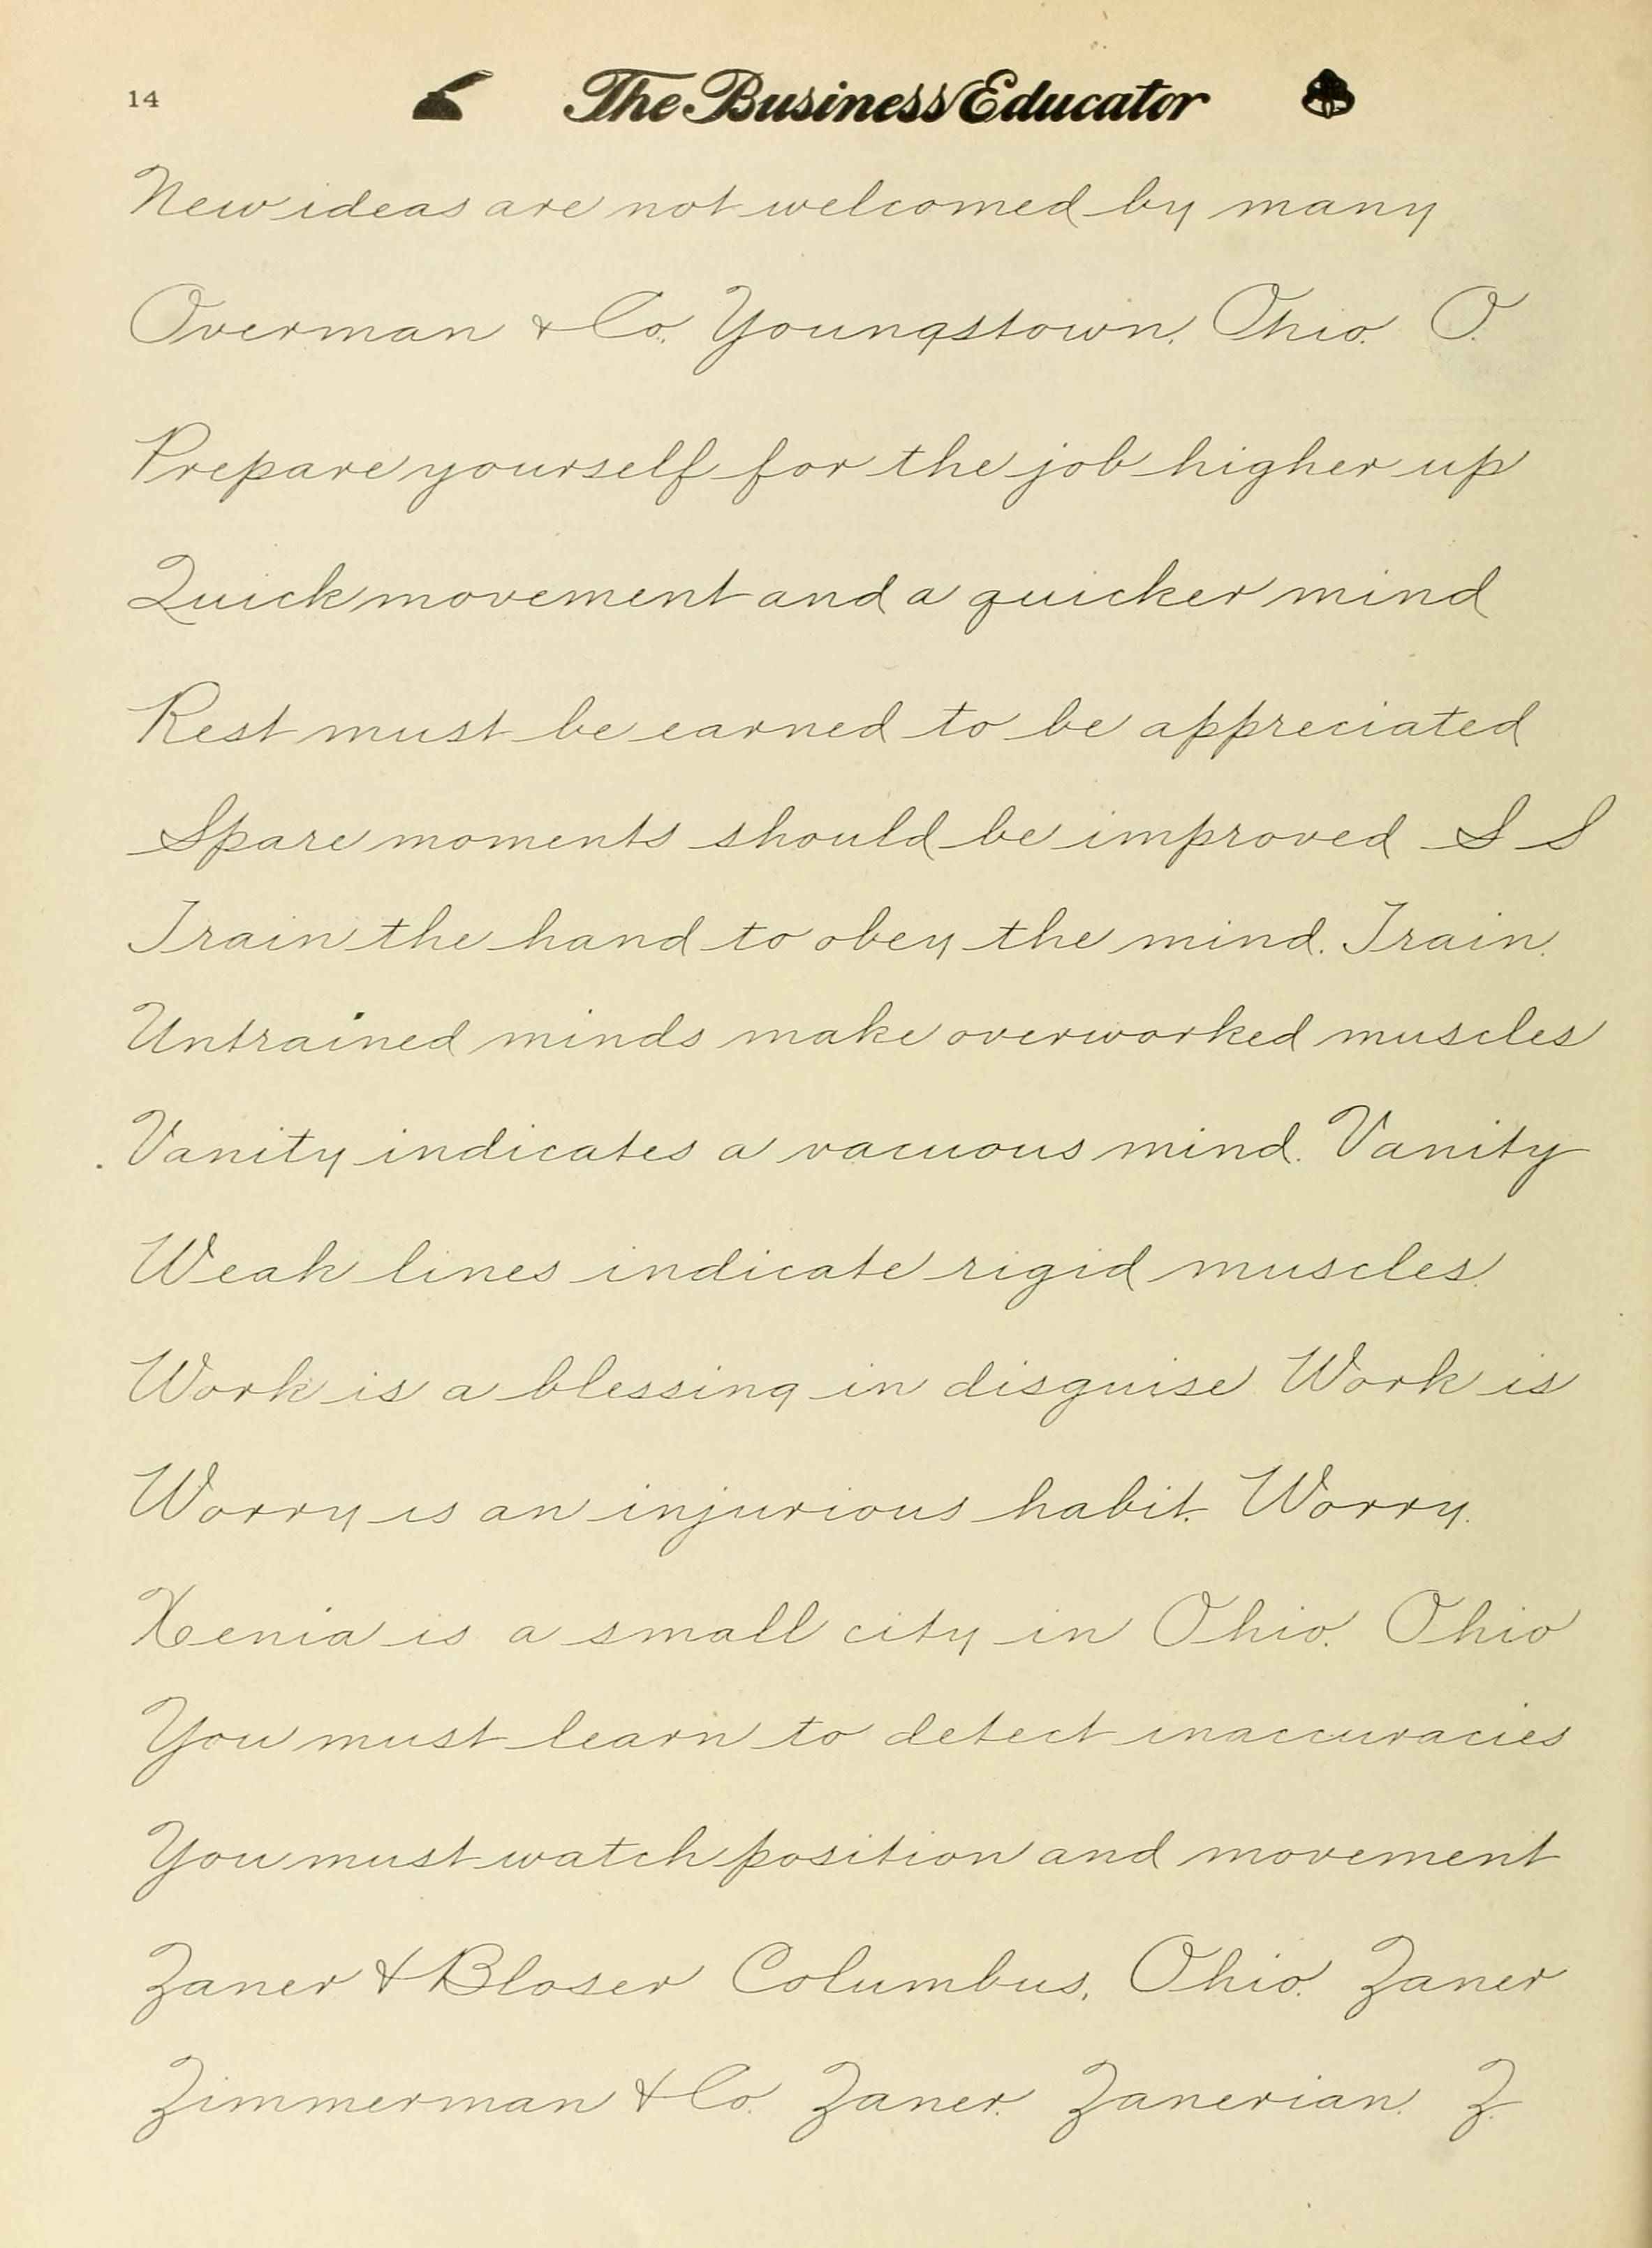 14 The Business Educator
New ideas are not welcomed by many
Overman & Co. Youngstown, Ohio. O.
Prepare yourself for the job higher up
Quick movement and a quicker mind
Rest must be earned to be appreciated
Spare moments should be improved S S
Train the hand to obey the mind. Train.
Untrained minds make overworked muscles
Vanity indicates a vacuous mind. Vanity
Weak lines indicate rigid muscles.
Work is a blessing in disguise Work is
Worry is an injurious habit. Worry.
Xenia is a small city in Ohio. Ohio
You must learn to detect inaccuracies
You must watch position and movement
Zaner & Bloser Columbus, Ohio. Zaner
Zimmerman & Co. Zaner. Zanerian. Z.